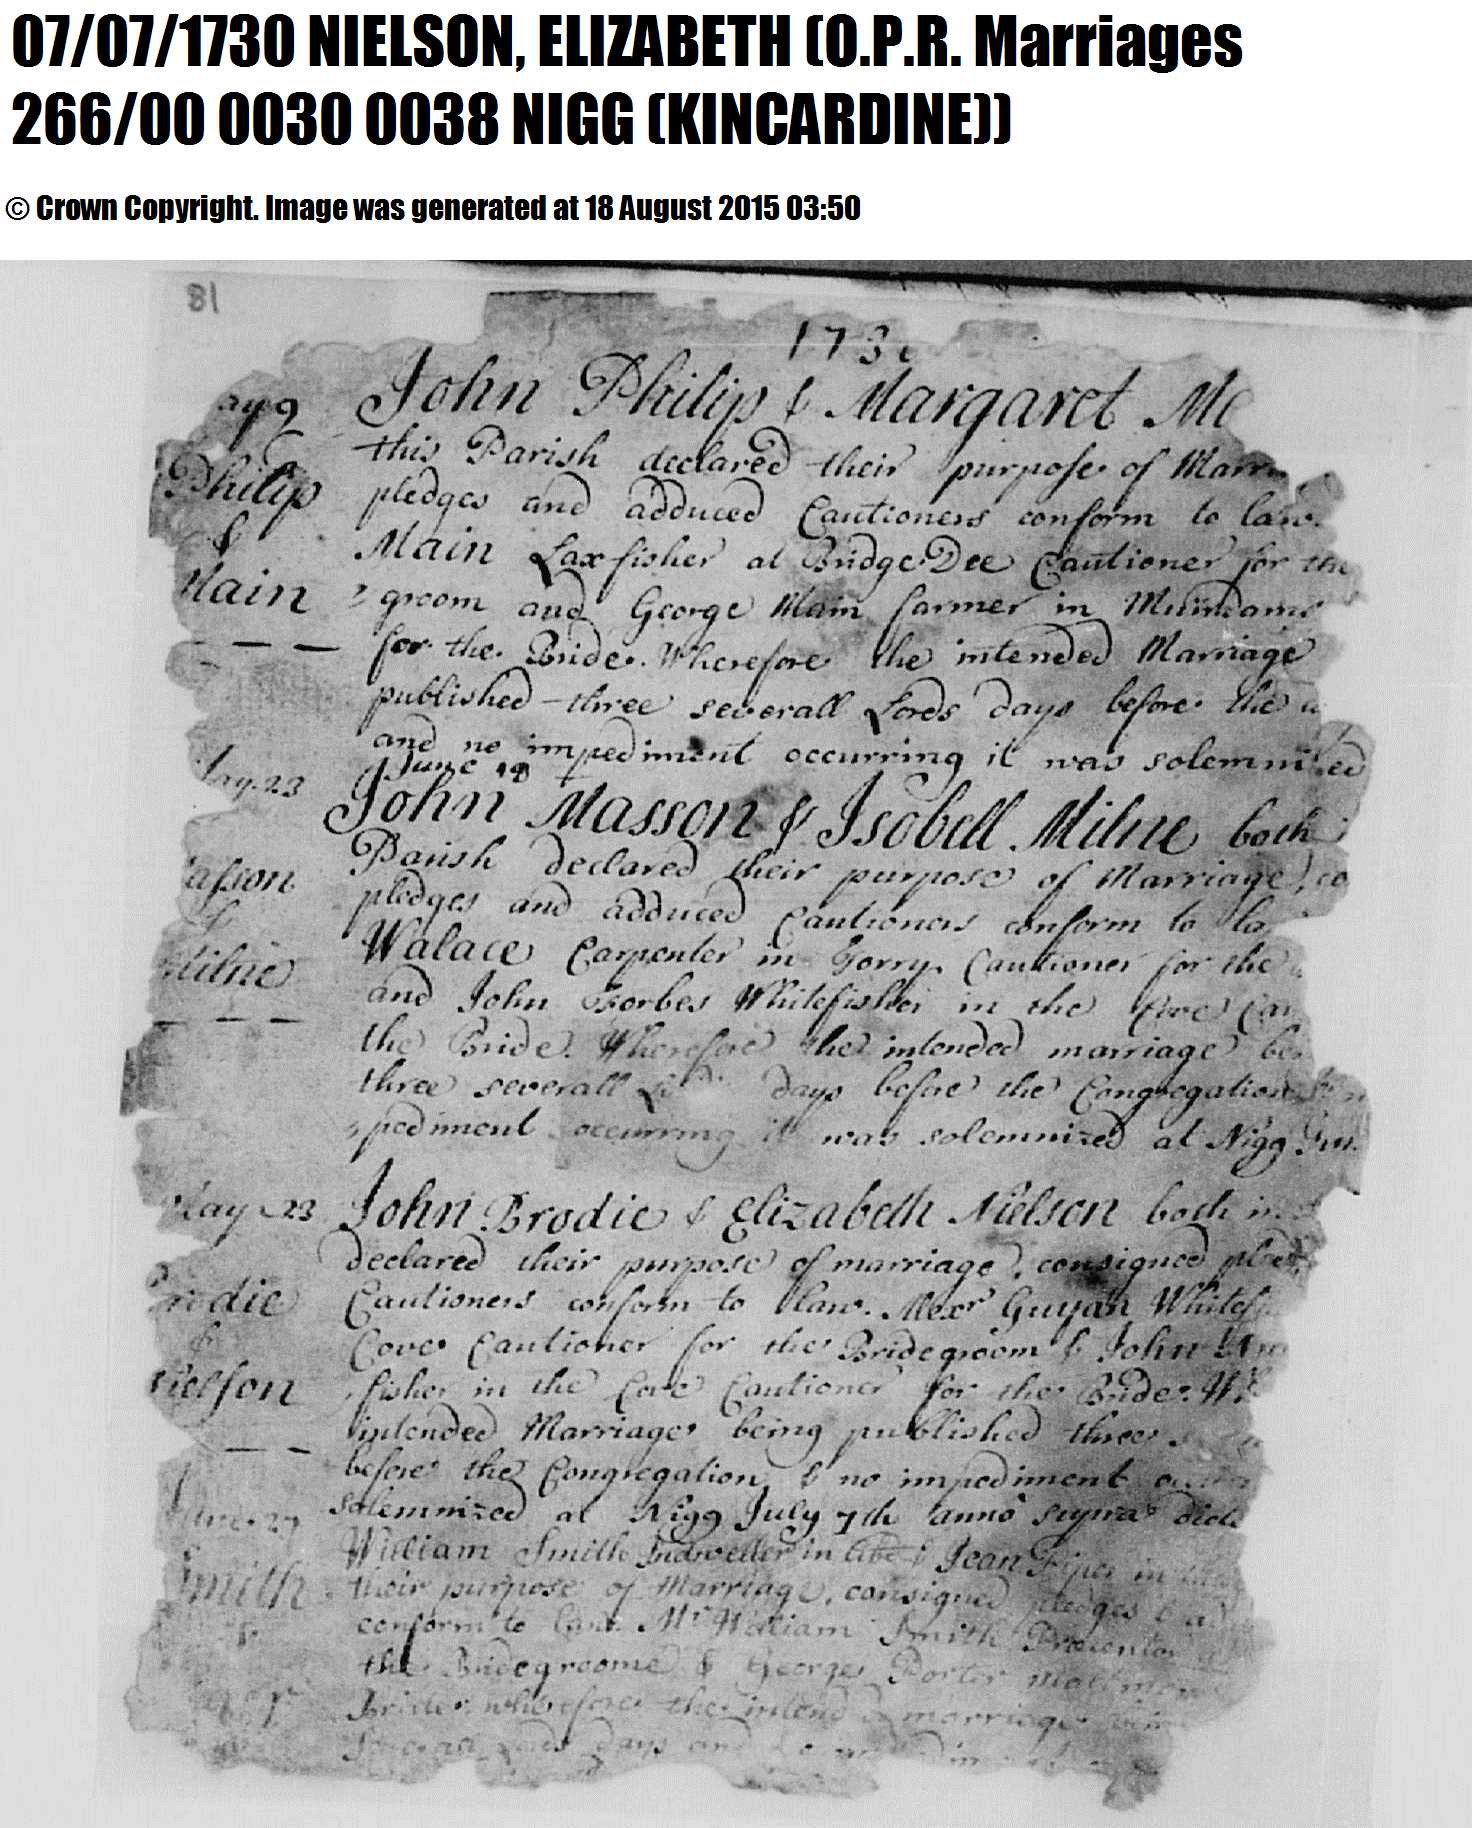 07/07/1730 NIELSON, ELIZABETH (O.P.R. Marriages
266/00 0030 0038 NIGG (KINCARDINE))
© Crown Copyright. Image was generated at 18 August 2015 03:50
18
173
ay 9
John Philip & Margaret
this Parish declared their purpose of
Philip
pledges and adduced Cautioners conform to law.
&
Main Laxfisher at Bridge Dee Cautioner for the
Main
groom and George Main farmer in
for the Bride. Wherefore the intended Marriage
published three severall Lords days before the
and no impediment occurring it was solemnized
June 18
May 23
John Masson & Isobell Milne both
Parish declared their purpose of Marriage, co
asson
pledges and adduced Cautioners conform to la
&
Walace Carpenter in Torry. Cautioner for the
Milne
and John Forbes Whitefisher in the Cove Cau
the Bride. Wherefore the intended marriage be
three severall days before the Congregation
pediment occurring it was solemnized at Nigg
May 23
John Brodie & Elizabeth Nielson both in
declared their purpose of marriage, consigned
Brodie
Cautioners conform to law. Alexr Guyan
&
Cove Cautioner for the Bridegroom & John
Nielson
fisher in the Cove Cautioner for the Bride.
intended Marriage being published three
before the Congregation & no impediment
June 27
solemnized at Nigg July 7th anno supra dict
William Smith Indweller in & Jean
Smith
their purpose of Marriage, consigned pledges &
conform to law. Mr William Smith
the Bridegroome & George Porter
Bride. wherefore the intend marriage
days and